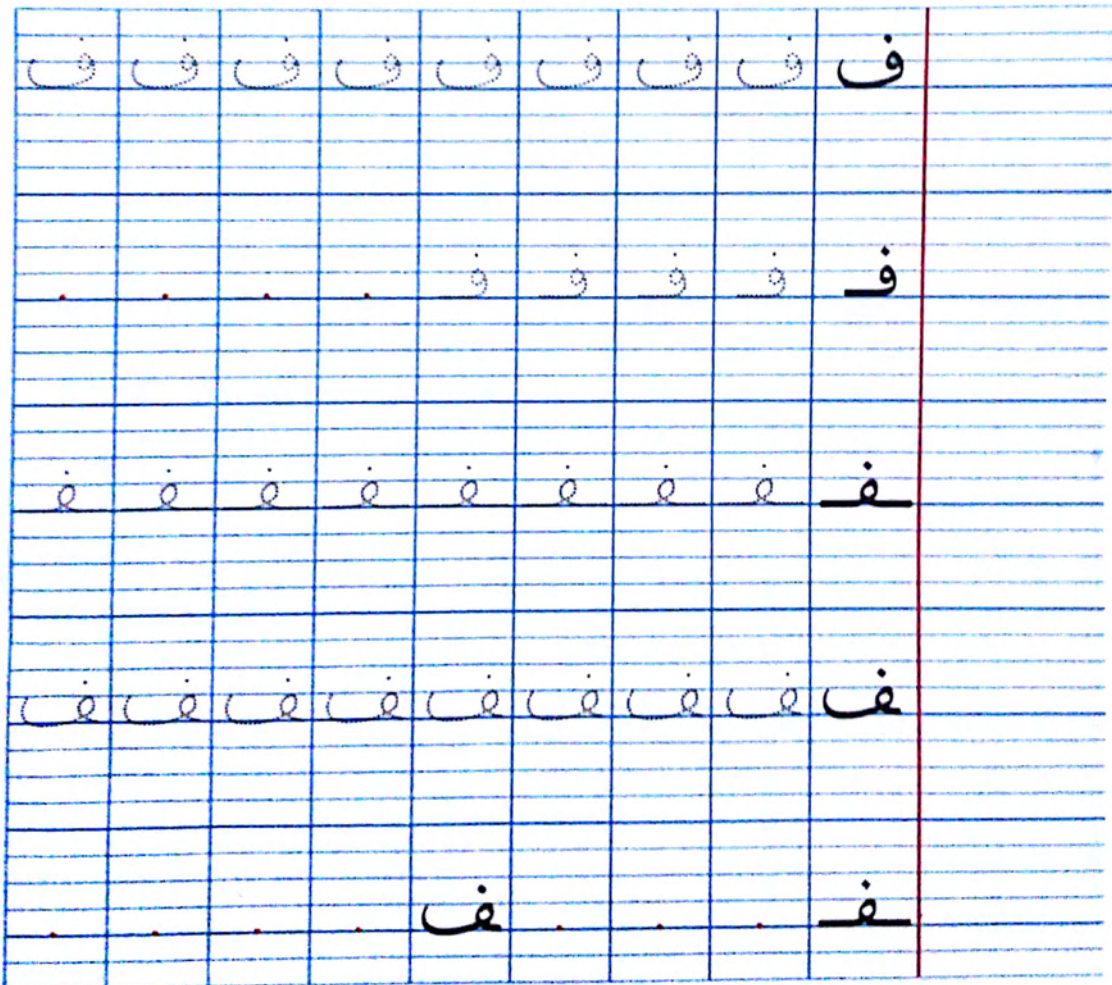 ف ف ف ف ف ف ف ف ف
فـ فـ فـ فـ فـ . . . .
ـفـ ـفـ ـفـ ـفـ ـفـ ـفـ ـفـ ـفـ ـفـ
ـف ـف ـف ـف ـف ـف ـف ـف ـف
ـفـ . . . ـف . . . .